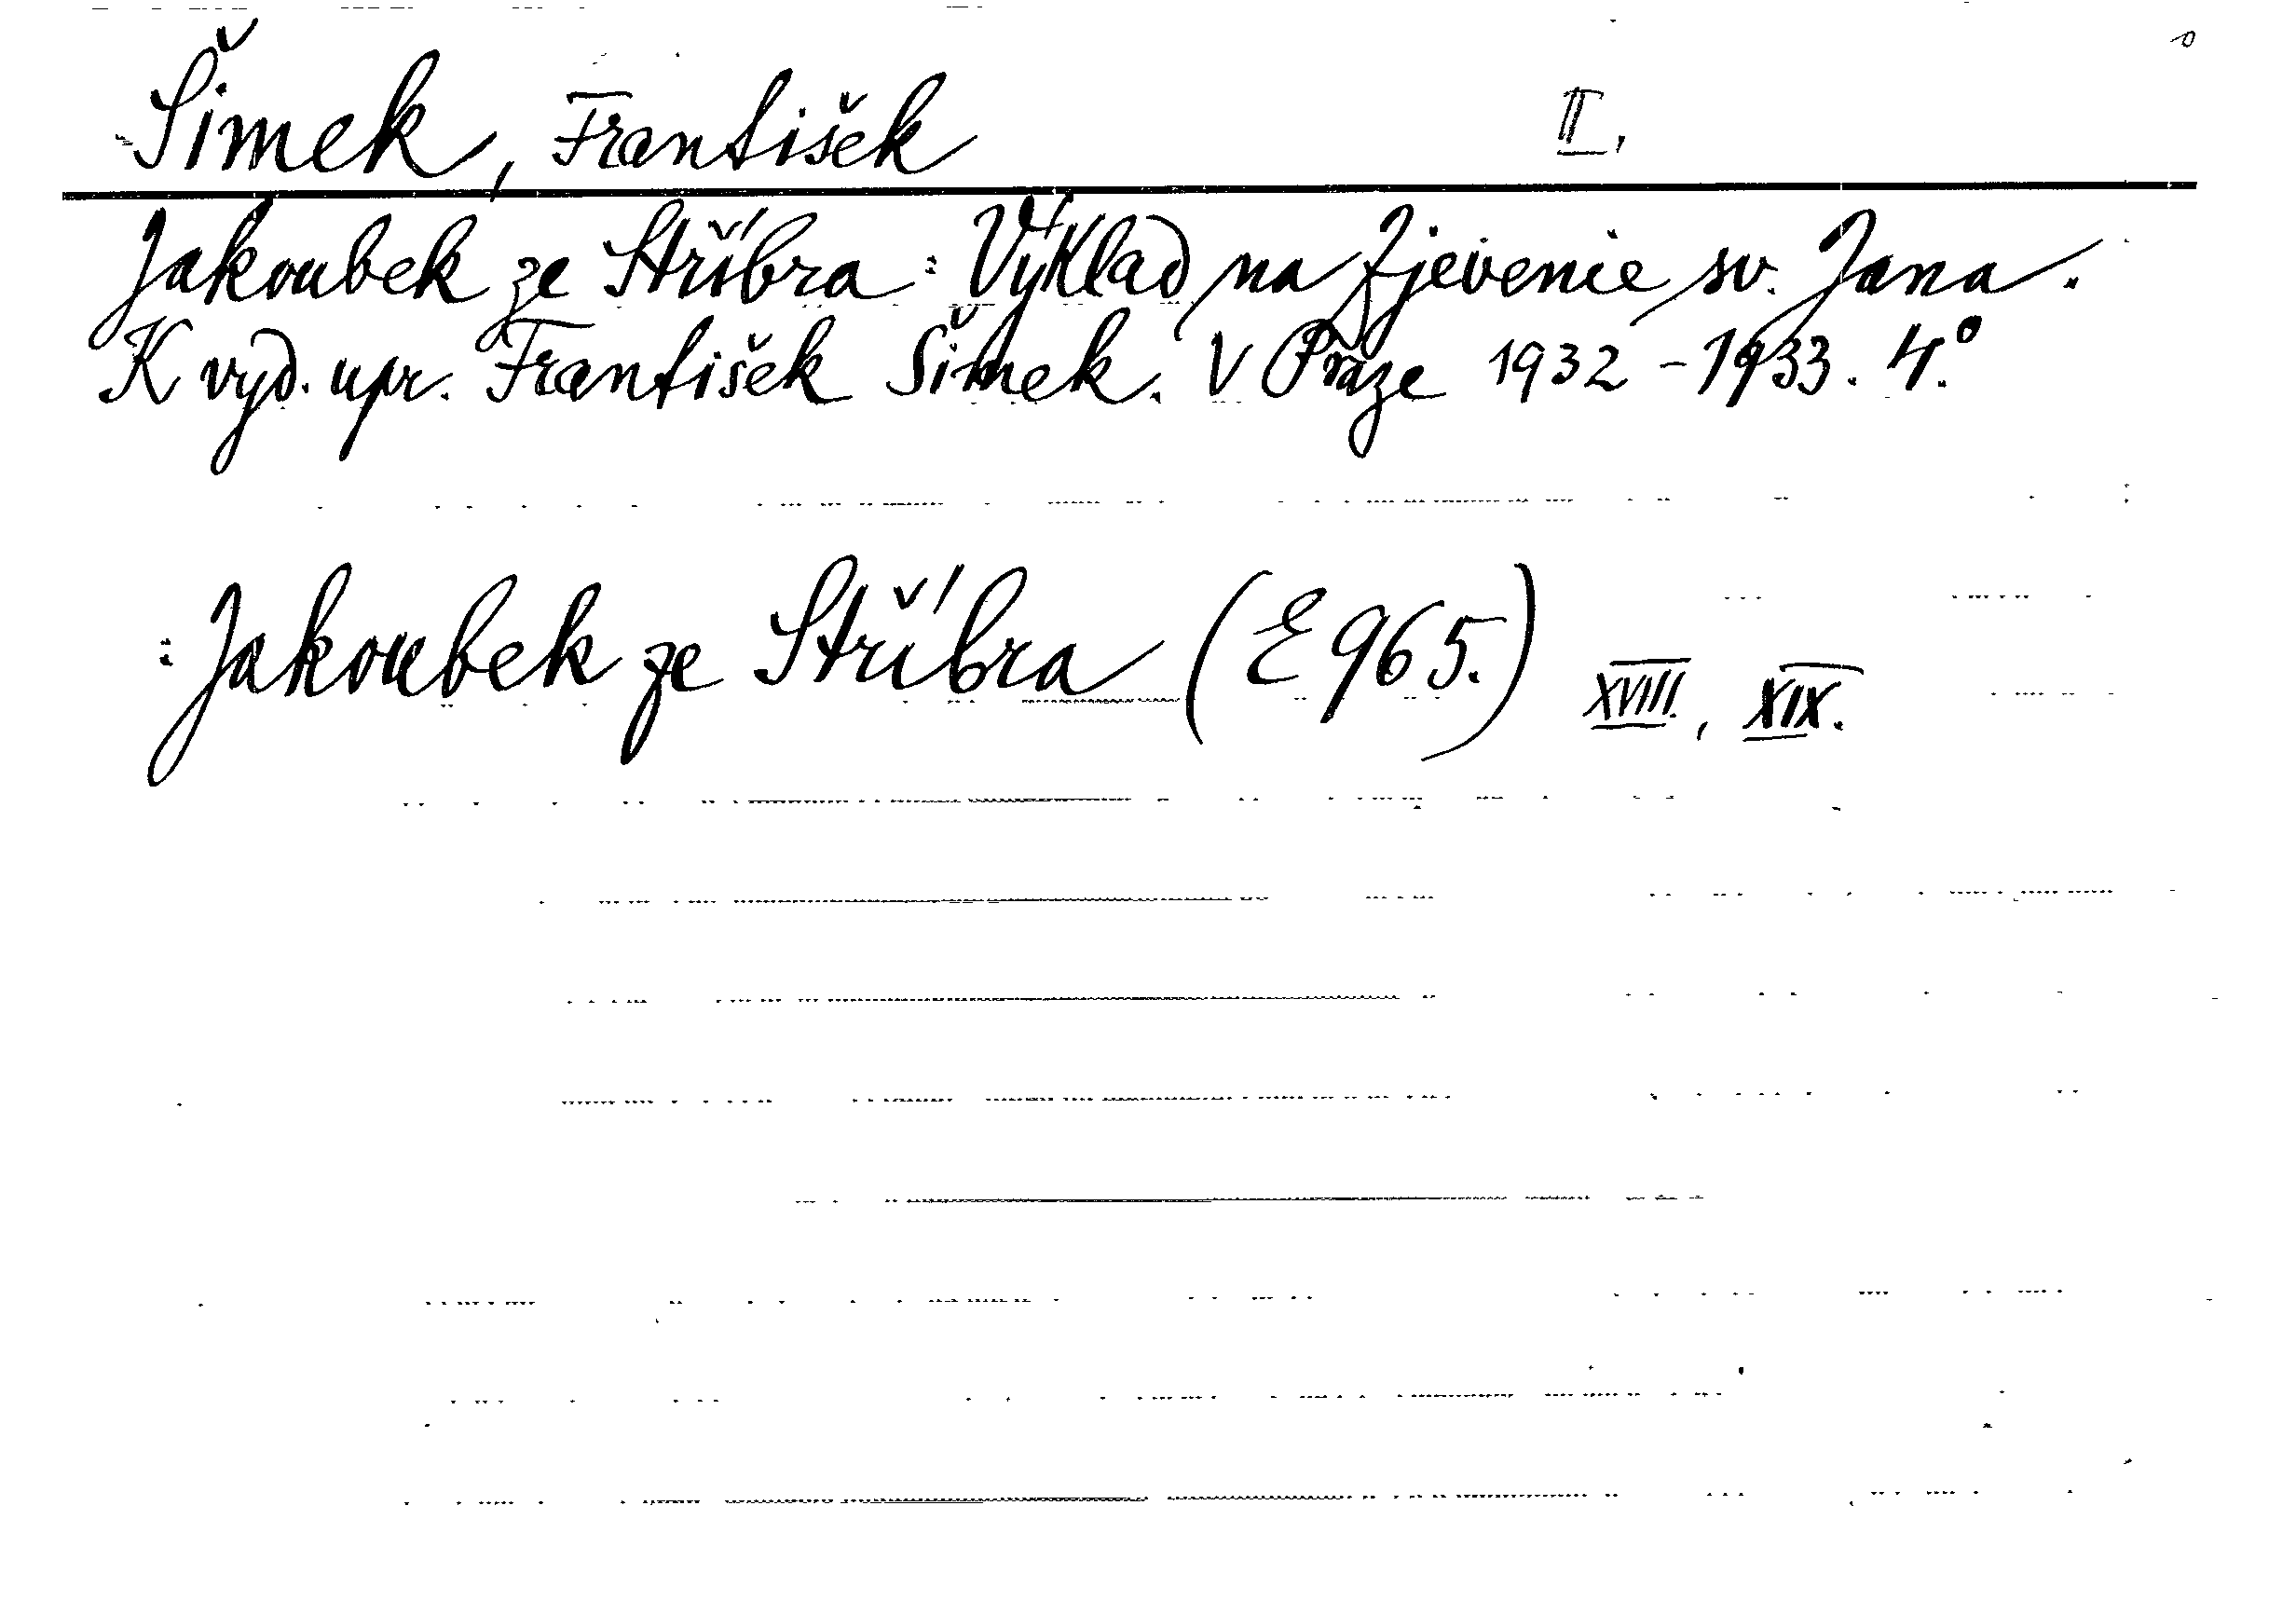 Šimek, František II.
Jakoubek ze Stříbra: Výklad na Zjevenie sv. Jana.
K vyd. upr. František Šimek. V Praze 1932-1933. 4.°
: Jakoubek ze Stříbra (E 965.) XVIII., XIX.